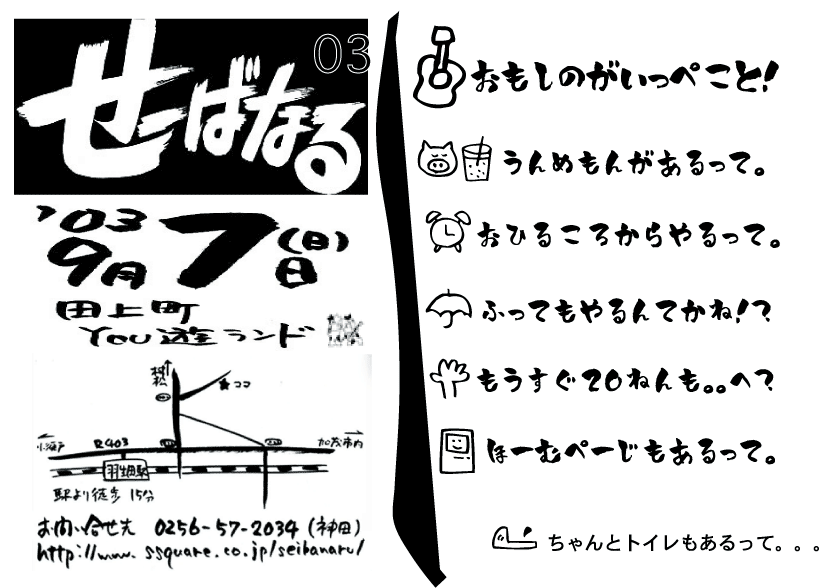 せーばなる
03
'03
9月7日(日)
田上町
YOU遊ランド
村松
ココ
小須戸
R403
加茂市内
羽生田駅
駅より徒歩 15分
お問い合せ先 0256-57-2034 (神田)
http://www.ssquare.co.jp/seibanaru/
おもしのがいっぺこと!
うんめもんがあるって。
おひるころからやるって。
ふってもやるんてかね!?
もうすぐ20ねんも。。へ?
ほーむぺーじもあるって。
ちゃんとトイレもあるって。。。